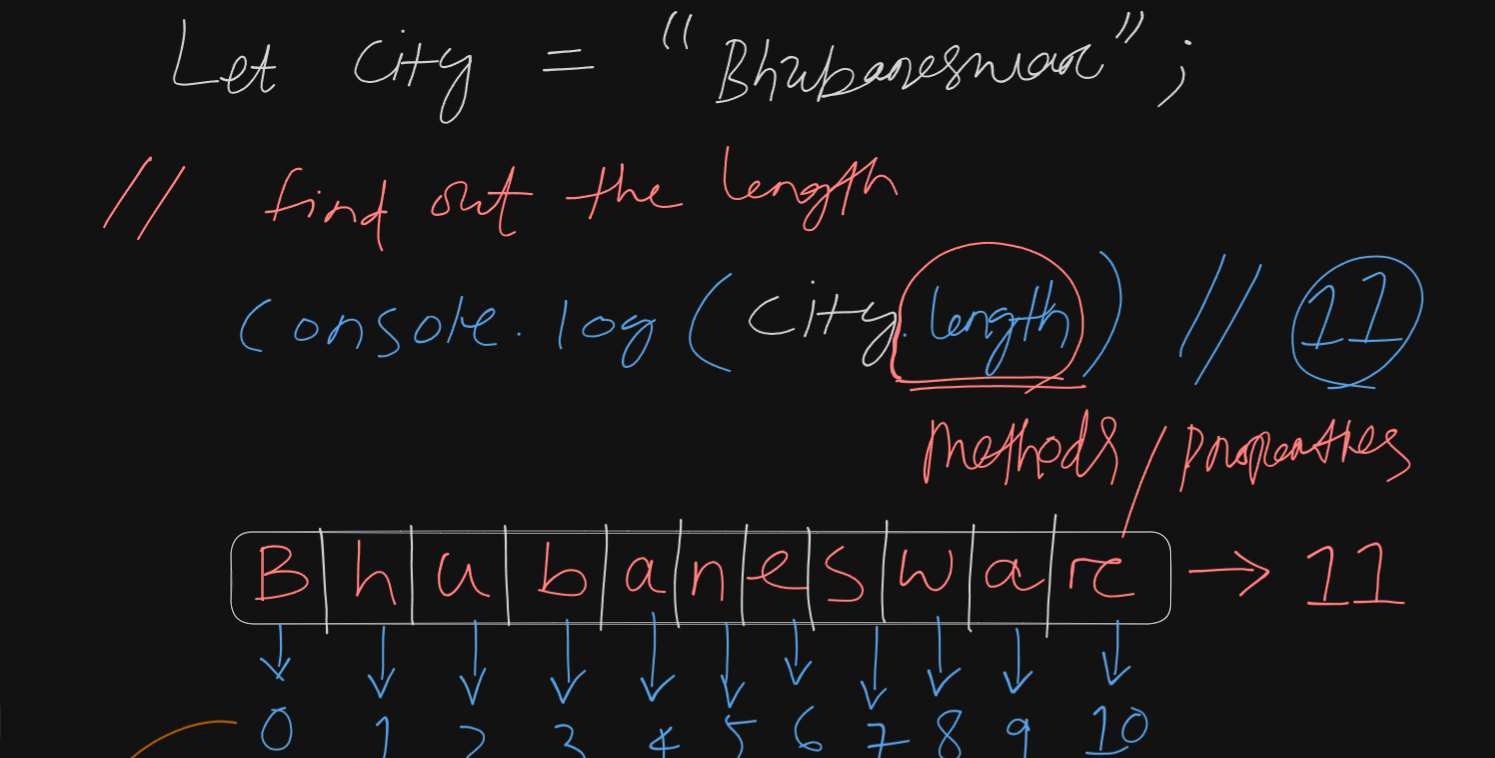 Let city = "Bhubaneswar";
// find out the length
console.log(city.length) // 11
methods/properties
B h u b a n e s w a r → 11
0 1 2 3 4 5 6 7 8 9 10